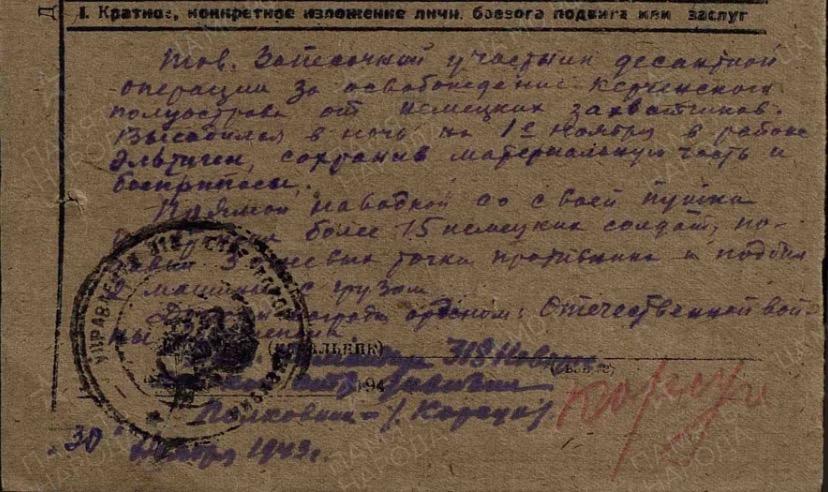 I. Краткое, конкретное изложение личн. боевого подвига или заслуг
Тов. Запесочный участник десантной
операции за освобождение Керченского
полуострова от немецких захватчиков.
Высадился в ночь на 1е ноября в районе
Эльтиген, сохранив материальную часть и
боеприпасы.
Прямой наводкой со своей пушки
более 15 немецких солдат, по-
давил 3 точки противника и подбил
2 машины с грузом
награды орденом: Отечественной вой-
ны степени
(начальник)
319
194
Полковник
"30" ноября 1943 г.